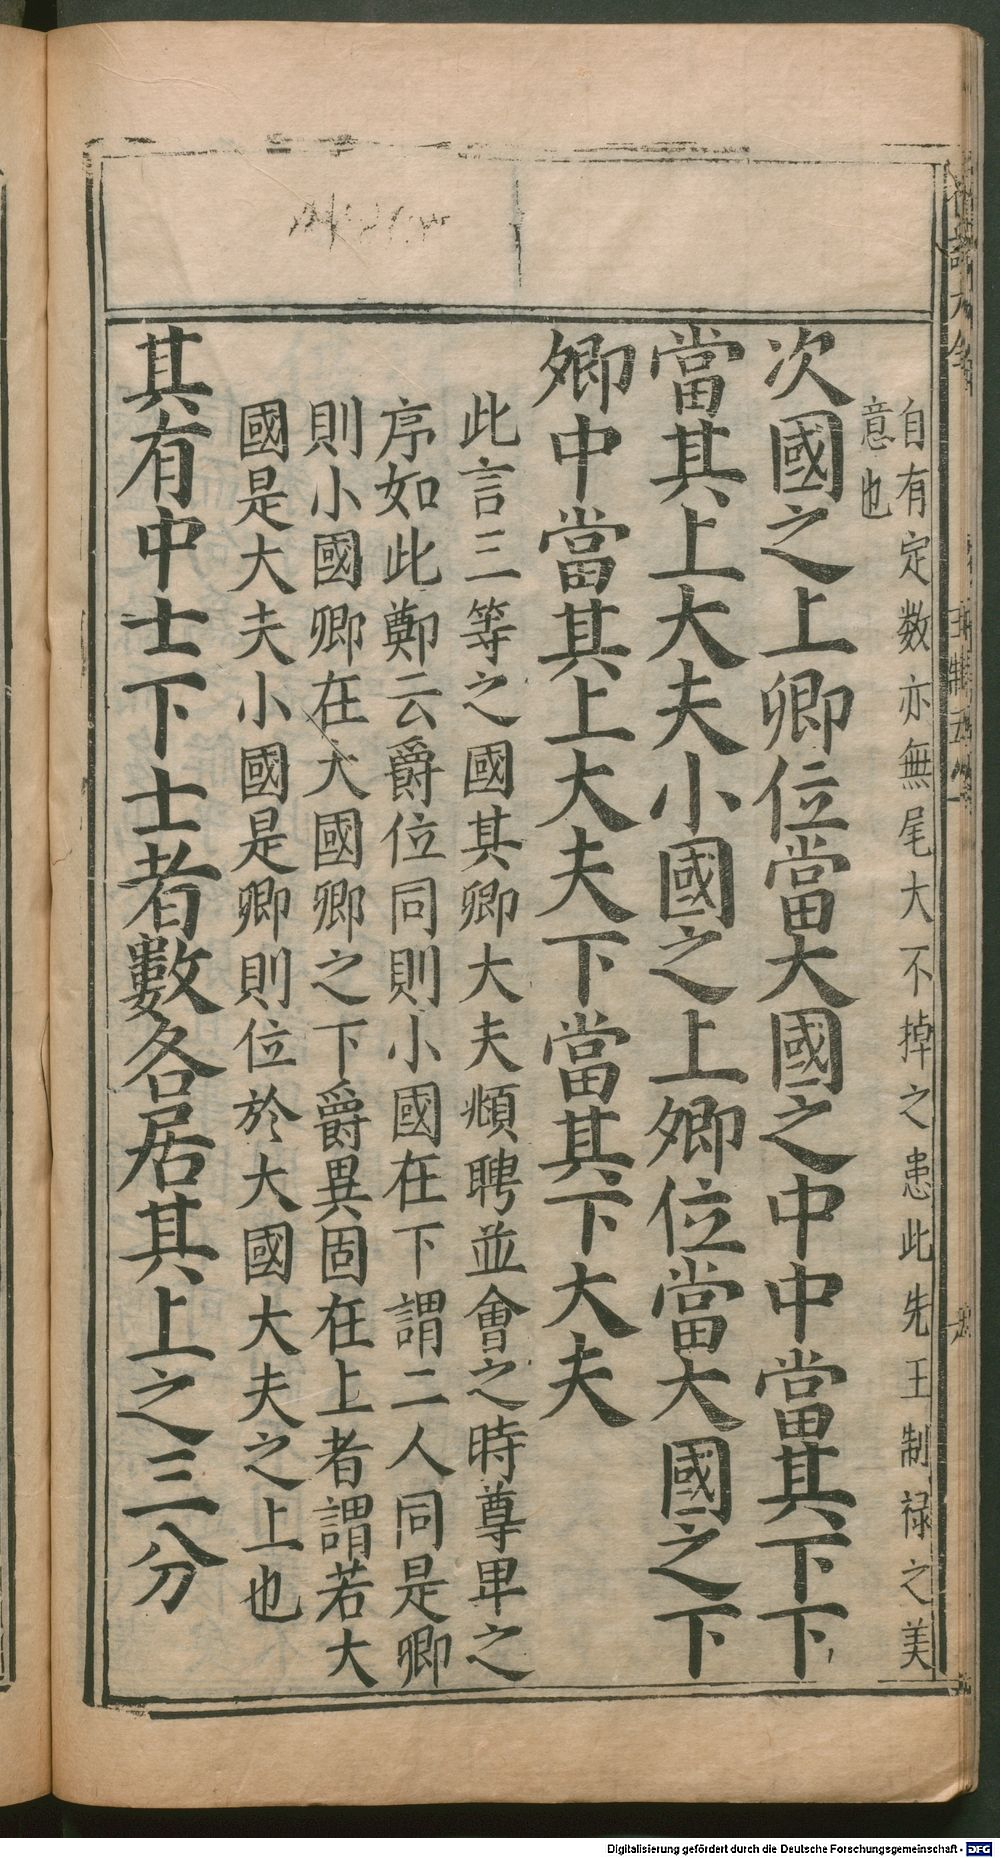 自有定数亦無尾大不掉之患此先王制禄之美
意也
次國之上卿位當大國之中中當其下下
當其上大夫小國之上卿位當大國之下
卿中當其上大夫下當其下大夫
此言三等之國其卿大夫頫聘並會之時尊卑之
序如此鄭云爵位同則小國在下謂二人同是卿
則小國卿在大國卿之下爵異固在上者謂若大
國是大夫小國是卿則位於大國大夫之上也
其有中士下士者數各居其上之三分
Digitalisierung gefördert durch die Deutsche Forschungsgemeinschaft - DFG